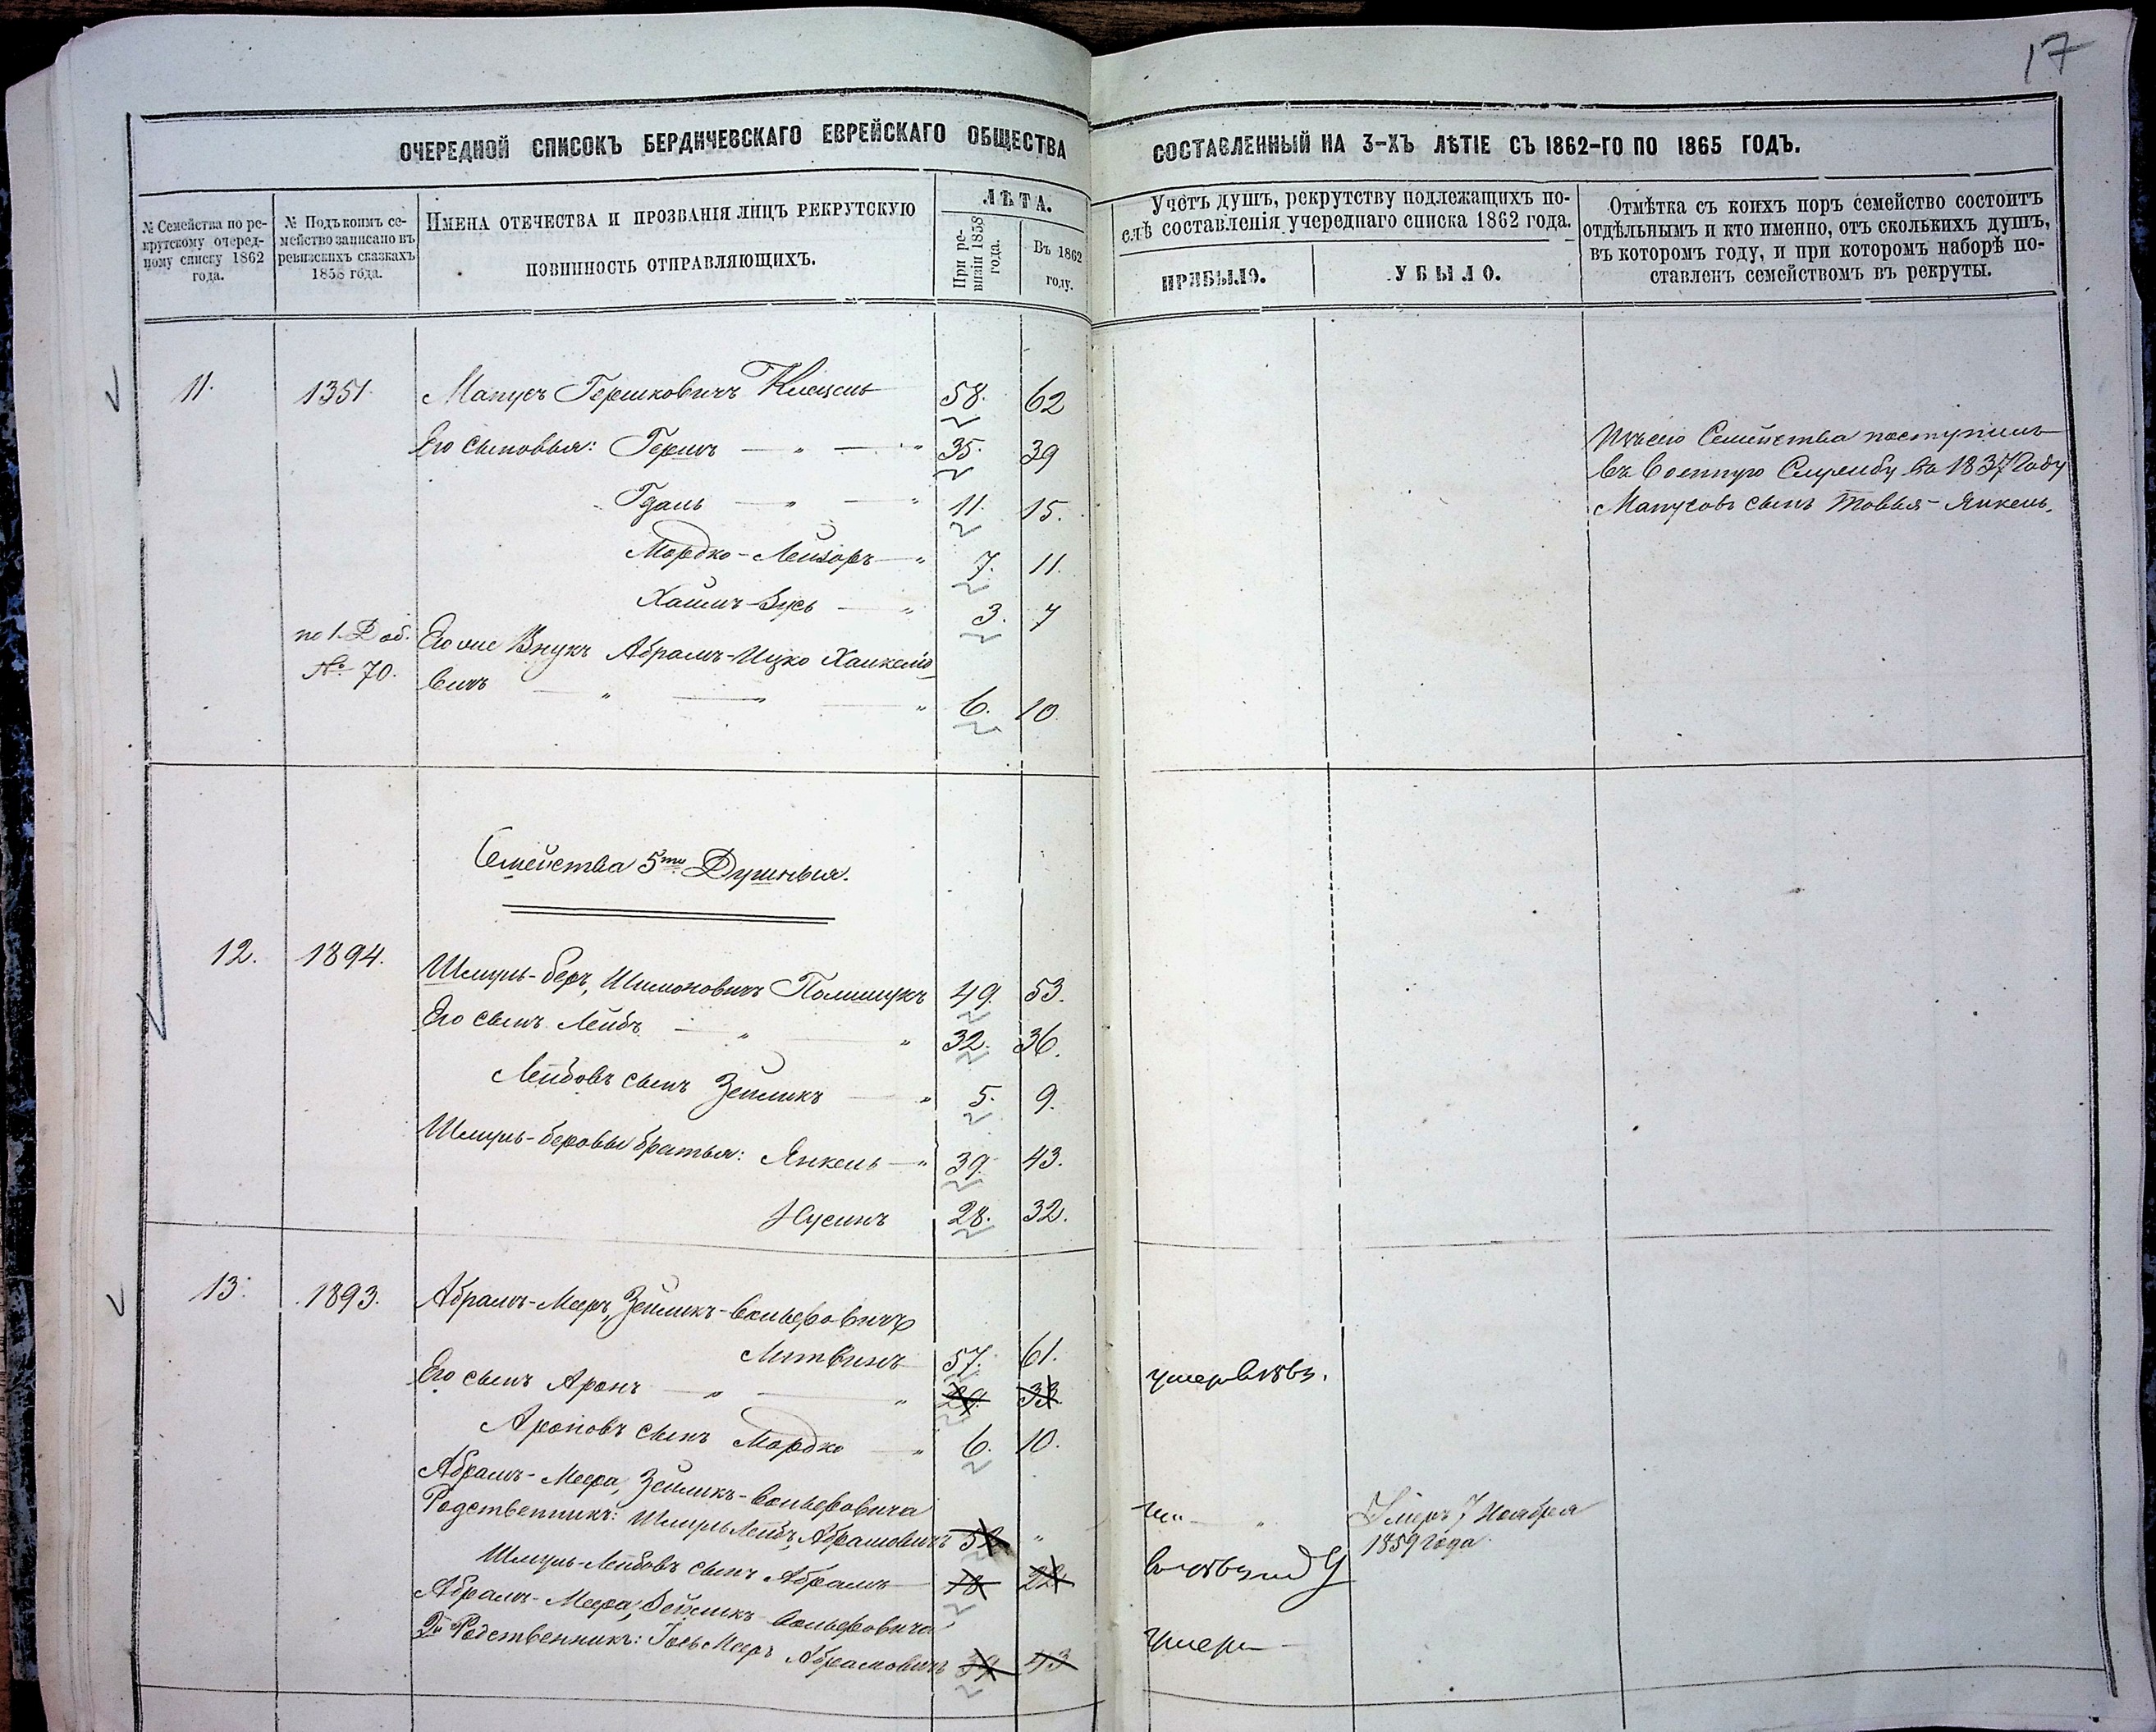 17
ОЧЕРЕДНОЙ СПИСОКЪ БЕРДИЧЕВСКАГО ЕВРЕЙСКАГО ОБЩЕСТВА
№ Семейства по рекрутскому очередному списку 1862 года.
№ Подъ коимъ семейство записано въ ревизскихъ сказкахъ 1858 года.
ИМЕНА ОТЕЧЕСТВА И ПРОЗВАНІЯ ЛИЦЪ РЕКРУТСКУЮ
ПОВИННОСТЬ ОТПРАВЛЯЮЩИХЪ.
ЛѢТА.
При ревизіи 1858 года.
Въ 1862 году.
11. 1351. Манусъ Гершковичъ 58. 62
Его сыновья: Гершъ — „ — „ 35. 39
Гдаль — „ — „ 11. 15.
Мордко-Лейзоръ — „ 7. 11.
Хаимъ-Зусь — „ 3. 7
по 1 Доб. Его же Внукъ Абрамъ-Ицко Ханкелио-
№ 70. вичъ — „ — „ — „ 6. 10
Семейства 5ти Душныя.
12. 1894. Шмуль-беръ, Шимоновичъ Полищукъ 49. 53.
Его сынъ Лейбъ — „ — „ 32. 36.
Лейбовъ сынъ Зейликъ — „ 5. 9.
Шмуль-беровы братья: Янкель — „ 39. 43.
Нусинъ 28. 32.
13. 1893. Абрамъ-Мееръ, Зейликъ-Вольфовичъ
Литвинъ 57. 61.
Его сынъ Аронъ — „ — „ 29. 33
Ароновъ сынъ Мордко — „ 6. 10.
Абрамъ-Меера, Зейликъ-Вольфовича
Родственникъ: Шмуль Лейбъ, Абрамовичъ 52 „
Шмуль-Лейбовъ сынъ Абрамъ — 18 22
Абрамъ-Меера, Зейликъ Вольфовича
2й Родственникъ: Іось Мееръ Абрамовичъ 39 43
СОСТАВЛЕННЫЙ НА 3-ХЪ ЛѢТІЕ СЪ 1862-ГО ПО 1865 ГОДЪ.
Учетъ душъ, рекрутству подлежащихъ по-
слѣ составленія учереднаго списка 1862 года.
ПРИБЫЛО.
УБЫЛО.
Отмѣтка съ коихъ поръ семейство состоитъ
отдѣльнымъ и кто именно, отъ сколькихъ душъ,
въ которомъ году, и при которомъ наборѣ по-
ставленъ семействомъ въ рекруты.
Изъ сего Семейства поступилъ
въ Военную Службу въ 1837 Году
Манусовъ сынъ Товья-Янкель.
умеръ в 1863.
Умеръ 7 Ноября
1859 года.
умеръ